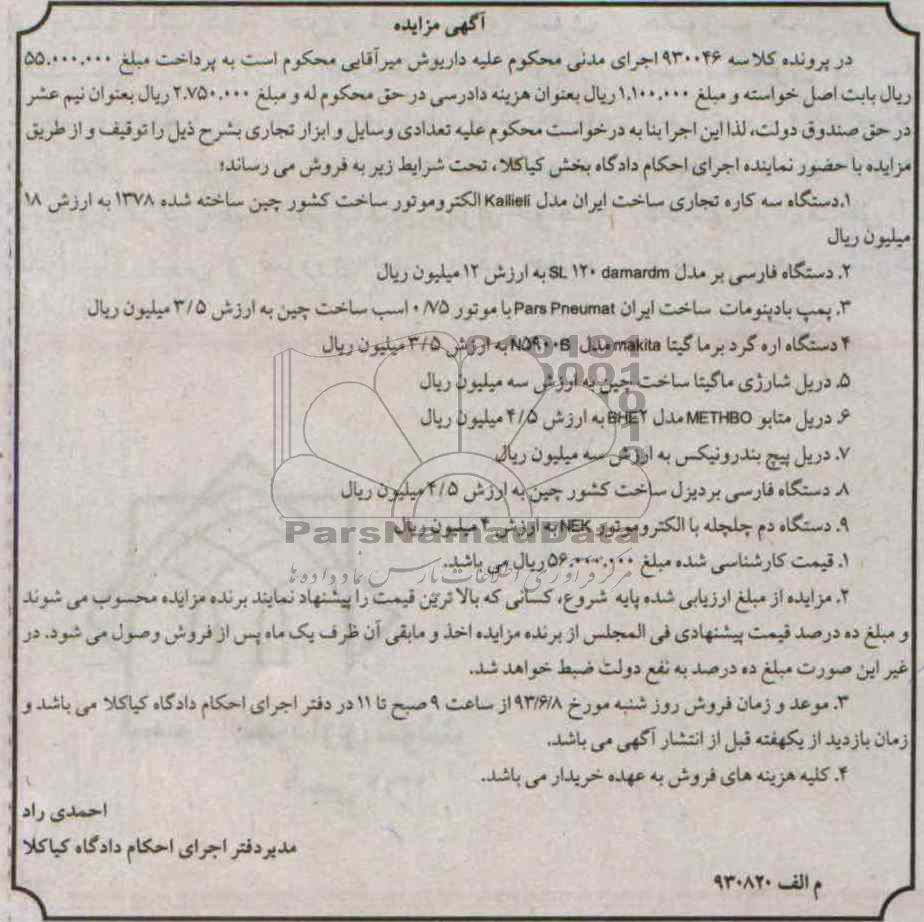 آگهی مزایده
در پرونده کلاسه ۹۳۰۰۴۶ اجرای مدنی محکوم علیه داریوش میرآقایی محکوم است به پرداخت مبلغ ۵۵.۰۰۰.۰۰۰
ریال بابت اصل خواسته و مبلغ ۱.۱۰۰.۰۰۰ ریال بعنوان هزینه دادرسی در حق محکوم له و مبلغ ۲.۷۵۰.۰۰۰ ریال بعنوان نیم عشر
در حق صندوق دولت، لذا این اجرا بنا به درخواست محکوم علیه تعدادی وسایل و ابزار تجاری بشرح ذیل را توقیف و از طریق
مزایده با حضور نماینده اجرای احکام دادگاه بخش کیاکلا، تحت شرایط زیر به فروش می رساند؛
۱.دستگاه سه کاره تجاری ساخت ایران مدل Kallieli الکتروموتور ساخت کشور چین ساخته شده ۱۳۷۸ به ارزش ۱۸
میلیون ریال
۲. دستگاه فارسی بر مدل SL ۱۲۰ damardm به ارزش ۱۲ میلیون ریال
۳. پمپ بادپنومات ساخت ایران Pars Pneumat با موتور ۰/۷۵ اسب ساخت چین به ارزش ۳/۵ میلیون ریال
۴ دستگاه اره گرد برما گیتا makita مدل N۵۹۰۰B به ارزش ۳/۵ میلیون ریال
۵. دریل شارژی ماگیتا ساخت چین به ارزش سه میلیون ریال
۶. دریل متابو METHBO مدل BHE۲ به ارزش ۴/۵ میلیون ریال
۷. دریل پیچ بندرونیکس به ارزش سه میلیون ریال
۸. دستگاه فارسی بردیزل ساخت کشور چین به ارزش ۴/۵ میلیون ریال
۹. دستگاه دم چلچله با الکتروموتور NEK به ارزش ۴ میلیون ریال
ParsNamadData
۱. قیمت کارشناسی شده مبلغ ۵۶.۰۰۰.۰۰۰ ریال می باشد.
مرکز فرآوری اطلاعات پارس نماد داده ها
۲. مزایده از مبلغ ارزیابی شده پایه شروع، کسانی که بالا ترین قیمت را پیشنهاد نمایند برنده مزایده محسوب می شوند
و مبلغ ده درصد قیمت پیشنهادی فی المجلس از برنده مزایده اخذ و مابقی آن ظرف یک ماه پس از فروش وصول می شود. در
غیر این صورت مبلغ ده درصد به نفع دولت ضبط خواهد شد.
۳. موعد و زمان فروش روز شنبه مورخ ۹۳/۶/۸ از ساعت ۹ صبح تا ۱۱ در دفتر اجرای احکام دادگاه کیاکلا می باشد و
زمان بازدید از یکهفته قبل از انتشار آگهی می باشد.
۴. کلیه هزینه های فروش به عهده خریدار می باشد.
احمدی راد
مدیردفتر اجرای احکام دادگاه کیاکلا
م الف ۹۳۰۸۲۰